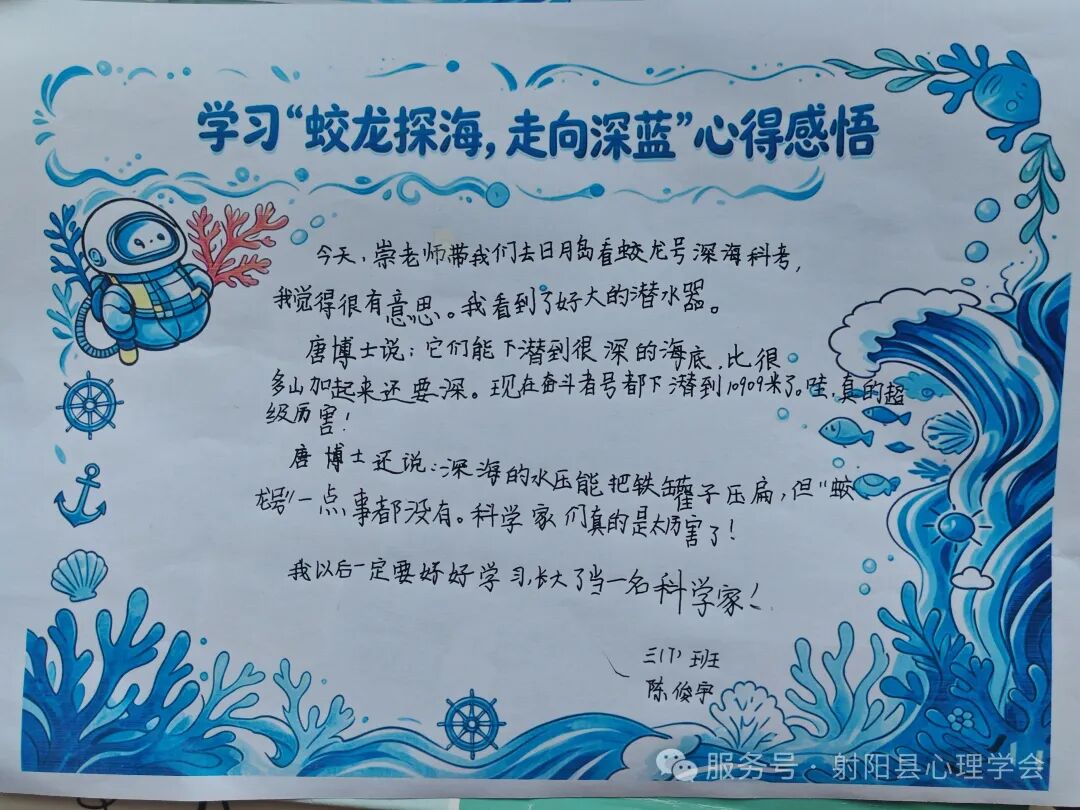 学习“蛟龙探海，走向深蓝”心得感悟
今天，崇老师带我们去日月岛看蛟龙号深海科考，
我觉得很有意思。我看到了好大的潜水器。
唐博士说：它们能下潜到很深的海底，比很
多山加起来还要深。现在奋斗者号都下潜到10909米了。哇，真的超
级厉害！
唐博士还说：深海的水压能把铁罐子压扁，但“蛟
龙号”一点事都没有。科学家们真的是太厉害了！
我以后一定要好好学习，长大了当一名科学家！
班
陈俊宇
服务号·射阳县心理学会